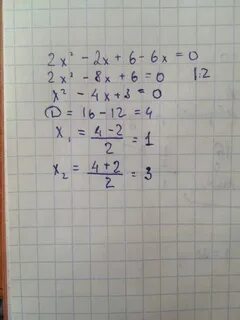 2x² - 2x + 6 - 6x = 0
2x² - 8x + 6 = 0 |:2
x² - 4x + 3 = 0
D = 16 - 12 = 4
x₁ = (4-2)/2 = 1
x₂ = (4+2)/2 = 3